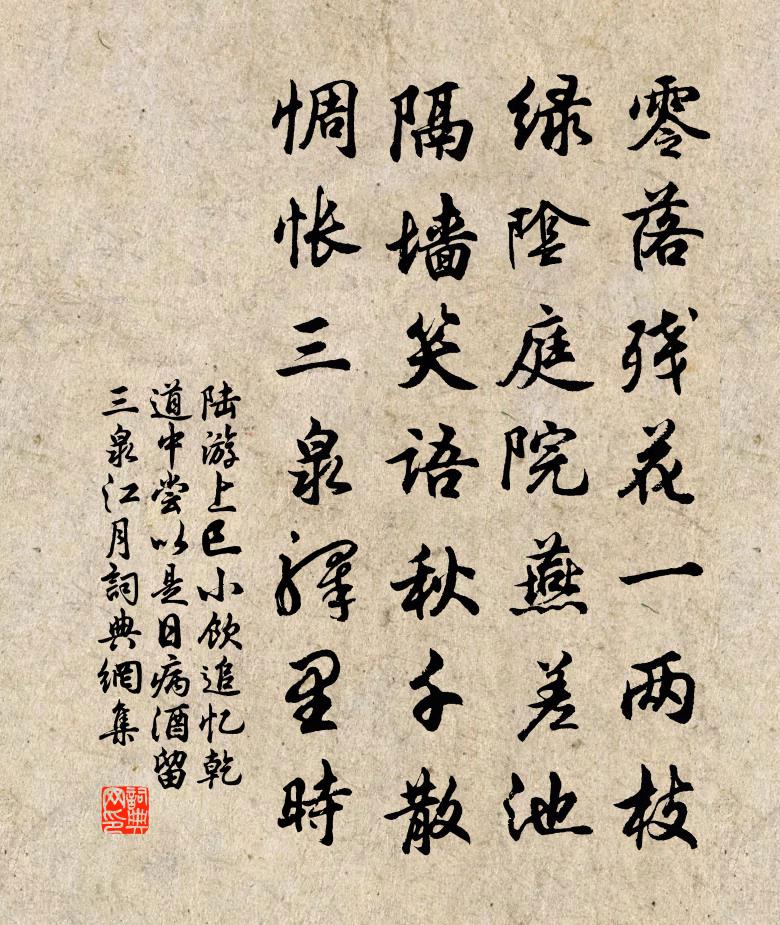 零落残花一两枝
绿陰庭院燕差池
隔墙笑语秋千散
惆怅三泉驿里時
陆游上巳小饮追忆乾
道中尝以是日病酒留
三泉江月詞典網集
詞典網印